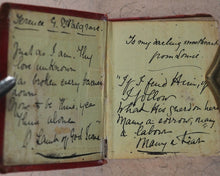 Florence G.
Just as I am, Thy
love unknown
has broken every barrier
down
Now to be Thine, yea
Thine alone
O Lamb of God I come
To my darling
from Louie
"If I find Him, if
I follow
What His guerdon here
Many a sorrow, many
a labour
Many a tear"